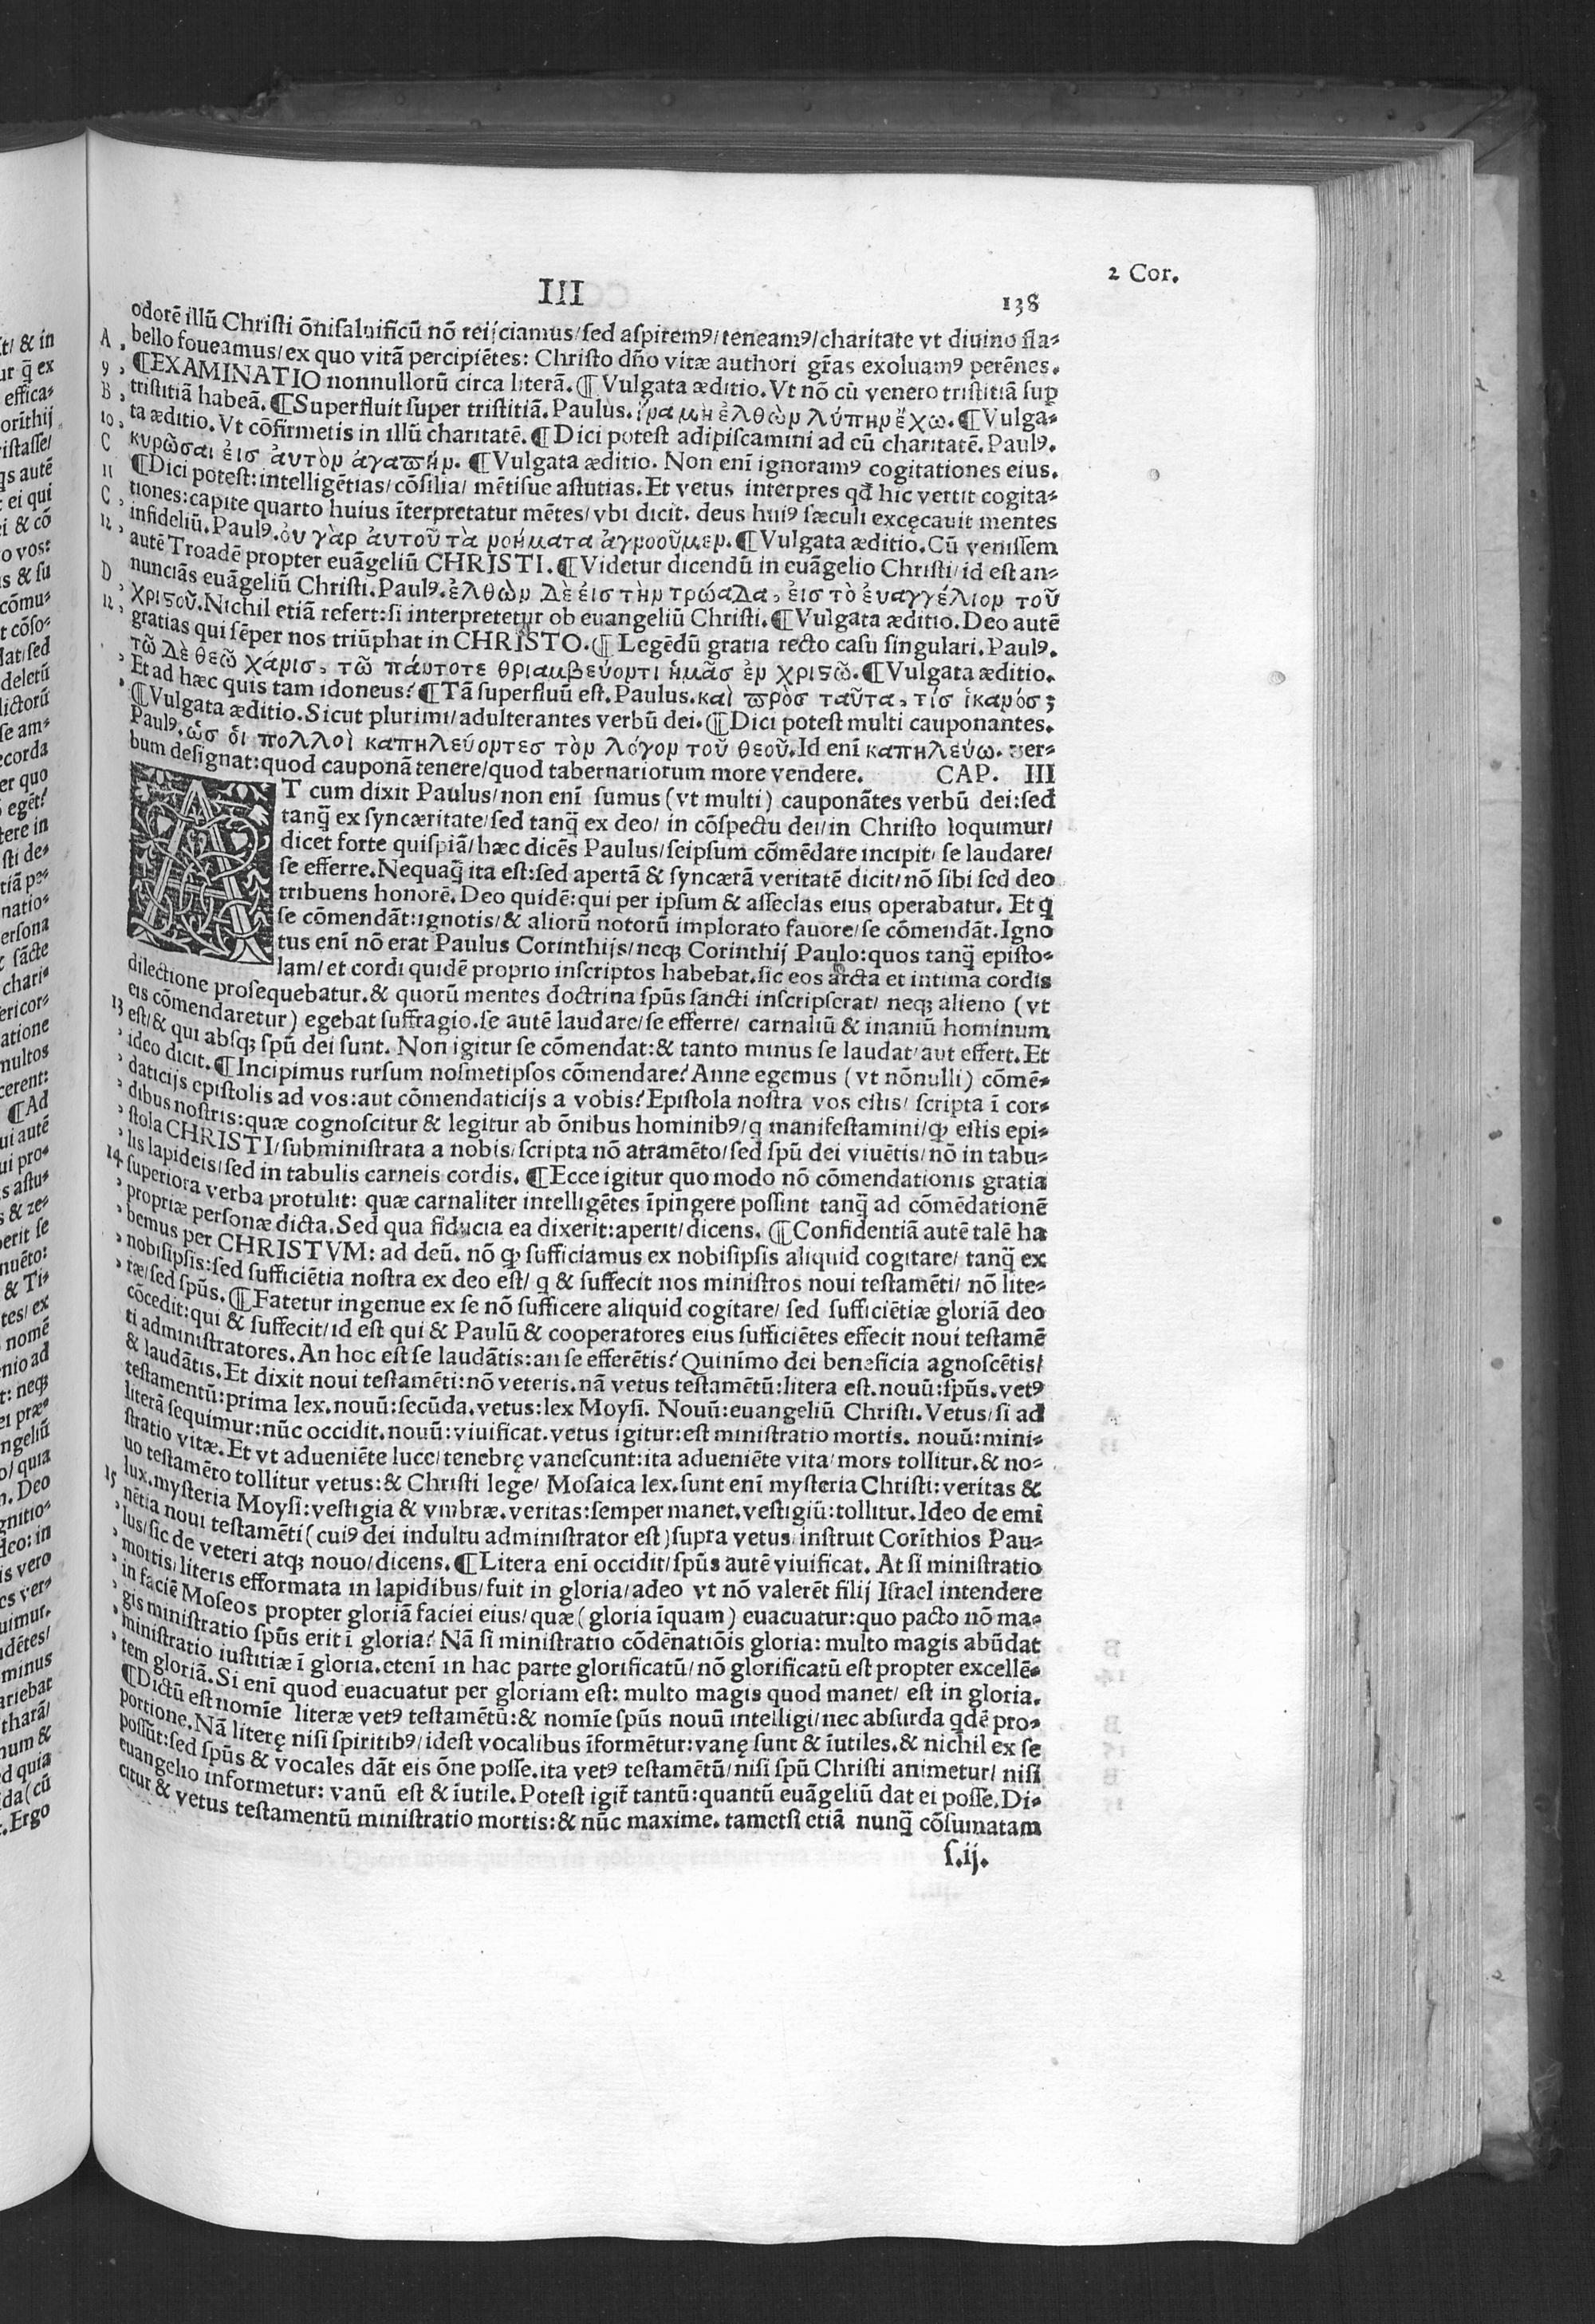 2 Cor.
III
138
odorē illū Christi ōnisaluificū nō reijciamus/sed aspiremꝰ/teneamꝰ/charitate vt diuino fla-
A , bello foueamus/ex quo vitā percipiētes: Christo dño vitæ authori gr̄as exoluamꝰ perēnes.
9 , ¶EXAMINATIO nonnullorū circa literā.¶Vulgata æditio. Vt nō cū venero tristitiā sup
B , tristitiā habeā.¶Superfluit super tristitiā.Paulus. ἵνα μὴ ἐλθὼν λύπην ἔχω.¶Vulga-
10 , ta æditio. Vt cōfirmetis in illū charitatē.¶Dici potest adipiscamini ad eū charitatē. Paulꝰ.
C κυρῶσαι ἐισ ἀυτὸν ἀγαπήν.¶Vulgata æditio. Non enī ignoramꝰ cogitationes eius.
11 ¶Dici potest:intelligētias/cōsilia/ mētisue astutias.Et vetus interpres qd̄ hic vertit cogita-
C , tiones:capite quarto huius īterpretatur mētes/vbi dicit. deus huiꝰ sæculi excęcauit mentes
12 , infideliū.Paulꝰ.ὀυ γὰρ ἀυτοῦ τὰ νοήματα ἀγνοοῦμεν.¶Vulgata æditio.Cū venissem
autē Troadē propter euāgeliū CHRISTI.¶Videtur dicendū in euāgelio Christi/id est an-
D nunciās euāgeliū Christi.Paulꝰ.ἐλθὼν δὲ ἐισ τὴν τρώαδα, ἐισ τὸ ἐυαγγέλιον τοῦ
12 , χριστοῦ.Nichil etiā refert:si interpretetur ob euangeliū Christi.¶Vulgata æditio.Deo autē
gratias qui sēper nos triūphat in CHRISTO.¶Legēdū gratia recto casu singulari.Paulꝰ.
τῶ δὲ θεῶ χάρισ, τῶ πάντοτε θριαμβεύοντι ἡμᾶσ ἐν χριστῶ.¶Vulgata æditio.
, Et ad hæc quis tam idoneus?¶Tā superfluū est.Paulus.καὶ πρὸσ ταῦτα, τίσ ἱκανόσ;
, ¶Vulgata æditio.Sicut plurimi/adulterantes verbū dei.¶Dici potest multi cauponantes.
Paulꝰ.ὡσ ὁι πολλοὶ καπηλεύοντεσ τὸν λόγον τοῦ θεοῦ.Id enī καπηλεύω. ver-
bum designat:quod cauponā tenere/quod tabernariorum more vendere. CAP. III
AT cum dixit Paulus/non enī sumus (vt multi) cauponātes verbū dei:sed
tanq̄ ex syncæritate/sed tanq̄ ex deo/ in cōspectu dei/in Christo loquimur/
dicet forte quispiā/hæc dicēs Paulus/seipsum cōmēdare incipit/ se laudare/
se efferre.Nequaq̄ ita est:sed apertā & syncærā veritatē dicit/nō sibi sed deo
tribuens honorē.Deo quidē:qui per ipsum & asseclas eius operabatur. Et q̇
se cōmendāt:ignotis/& aliorū notorū implorato fauore/se cōmendāt.Igno
tus enī nō erat Paulus Corinthijs/neqꝫ Corinthij Paulo:quos tanq̄ episto-
lam/et cordi quidē proprio inscriptos habebat.sic eos arcta et intima cordis
dilectione prosequebatur.& quorū mentes doctrina spūs sancti inscripserat/ neqꝫ alieno (vt
eis cōmendaretur) egebat suffragio.se autē laudare/se efferre/ carnaliū & inaniū hominum
13 est/& qui absqꝫ spū dei sunt. Non igitur se cōmendat:& tanto minus se laudat/aut effert.Et
, ideo dicit.¶Incipimus rursum nosmetipsos cōmendare?Anne egemus (vt nōnulli) cōmē-
, daticijs epistolis ad vos:aut cōmendaticijs a vobis?Epistola nostra vos estis/ scripta ī cor-
, dibus nostris:quæ cognoscitur & legitur ab ōnibus hominibꝰ/q manifestamini/ꝙ estis epi-
, stola CHRISTI/subministrata a nobis/scripta nō atramēto/sed spū dei viuētis/nō in tabu-
, lis lapideis/sed in tabulis carneis cordis.¶Ecce igitur quo modo nō cōmendationis gratia
14 superiora verba protulit: quæ carnaliter intelligētes īpingere possint tanq̄ ad cōmēdationē
, propriæ personæ dicta.Sed qua fiducia ea dixerit:aperit/dicens.¶Confidentiā autē talē ha
, bemus per CHRISTVM: ad deū. nō ꝙ sufficiamus ex nobisipsis aliquid cogitare/ tanq̄ ex
, nobisipsis:sed sufficiētia nostra ex deo est/ q & suffecit nos ministros noui testamēti/ nō lite-
, ræ/sed spūs.¶Fatetur ingenue ex se nō sufficere aliquid cogitare/ sed sufficiētiæ gloriā deo
cōcedit:qui & suffecit/id est qui & Paulū & cooperatores eius sufficiētes effecit noui testamē
ti administratores.An hoc est se laudātis:an se efferētis?Quinimo dei beneficia agnoscētis/
& laudātis.Et dixit noui testamēti:nō veteris.nā vetus testamētū:litera est.nouū:spūs.vetꝰ
testamentū:prima lex.nouū:secūda.vetus:lex Moysi. Nouū:euangeliū Christi.Vetus/si ad
literā sequimur:nūc occidit.nouū:viuificat.vetus igitur:est ministratio mortis. nouū:mini-
stratio vitæ.Et vt adueniēte luce/tenebrę vanescunt:ita adueniēte vita/mors tollitur.& no-
uo testamēto tollitur vetus:& Christi lege/ Mosaica lex.sunt enī mysteria Christi:veritas &
15 lux.mysteria Moysi:vestigia & vmbræ.veritas:semper manet.vestigiū:tollitur.Ideo de emi
, nētia noui testamēti(cuiꝰ dei indultu administrator est)supra vetus/instruit Corīthios Pau-
, lus/sic de veteri atqꝫ nouo/dicens.¶Litera enī occidit/spūs autē viuificat. At si ministratio
, mortis/literis efformata in lapidibus/fuit in gloria/adeo vt nō valerēt filij Israel intendere
, in faciē Moseos propter gloriā faciei eius/quæ(gloria īquam) euacuatur:quo pacto nō ma-
, gis ministratio spūs erit ī gloria?Nā si ministratio cōdēnatiōis gloria: multo magis abūdat
, ministratio iustitiæ ī gloria.etenī in hac parte glorificatū/nō glorificatū est propter excellē-
, tem gloriā.Si enī quod euacuatur per gloriam est: multo magis quod manet/ est in gloria.
¶Dictū est nomīe literæ vetꝰ testamētū:& nomīe spūs nouū intelligi/nec absurda qdē pro-
portione.Nā literę nisi spiritibꝰ/idest vocalibus īformētur:vanę sunt & īutiles.& nichil ex se
possūt:sed spūs & vocales dāt eis ōne posse.ita vetꝰ testamētū/nisi spū Christi animetur/ nisi
euangelio informetur: vanū est & īutile.Potest igit̄ tantū:quantū euāgeliū dat ei posse.Di-
citur & vetus testamentū ministratio mortis:& nūc maxime.tametsi etiā nunq̄ cōsumatam
s.ij.